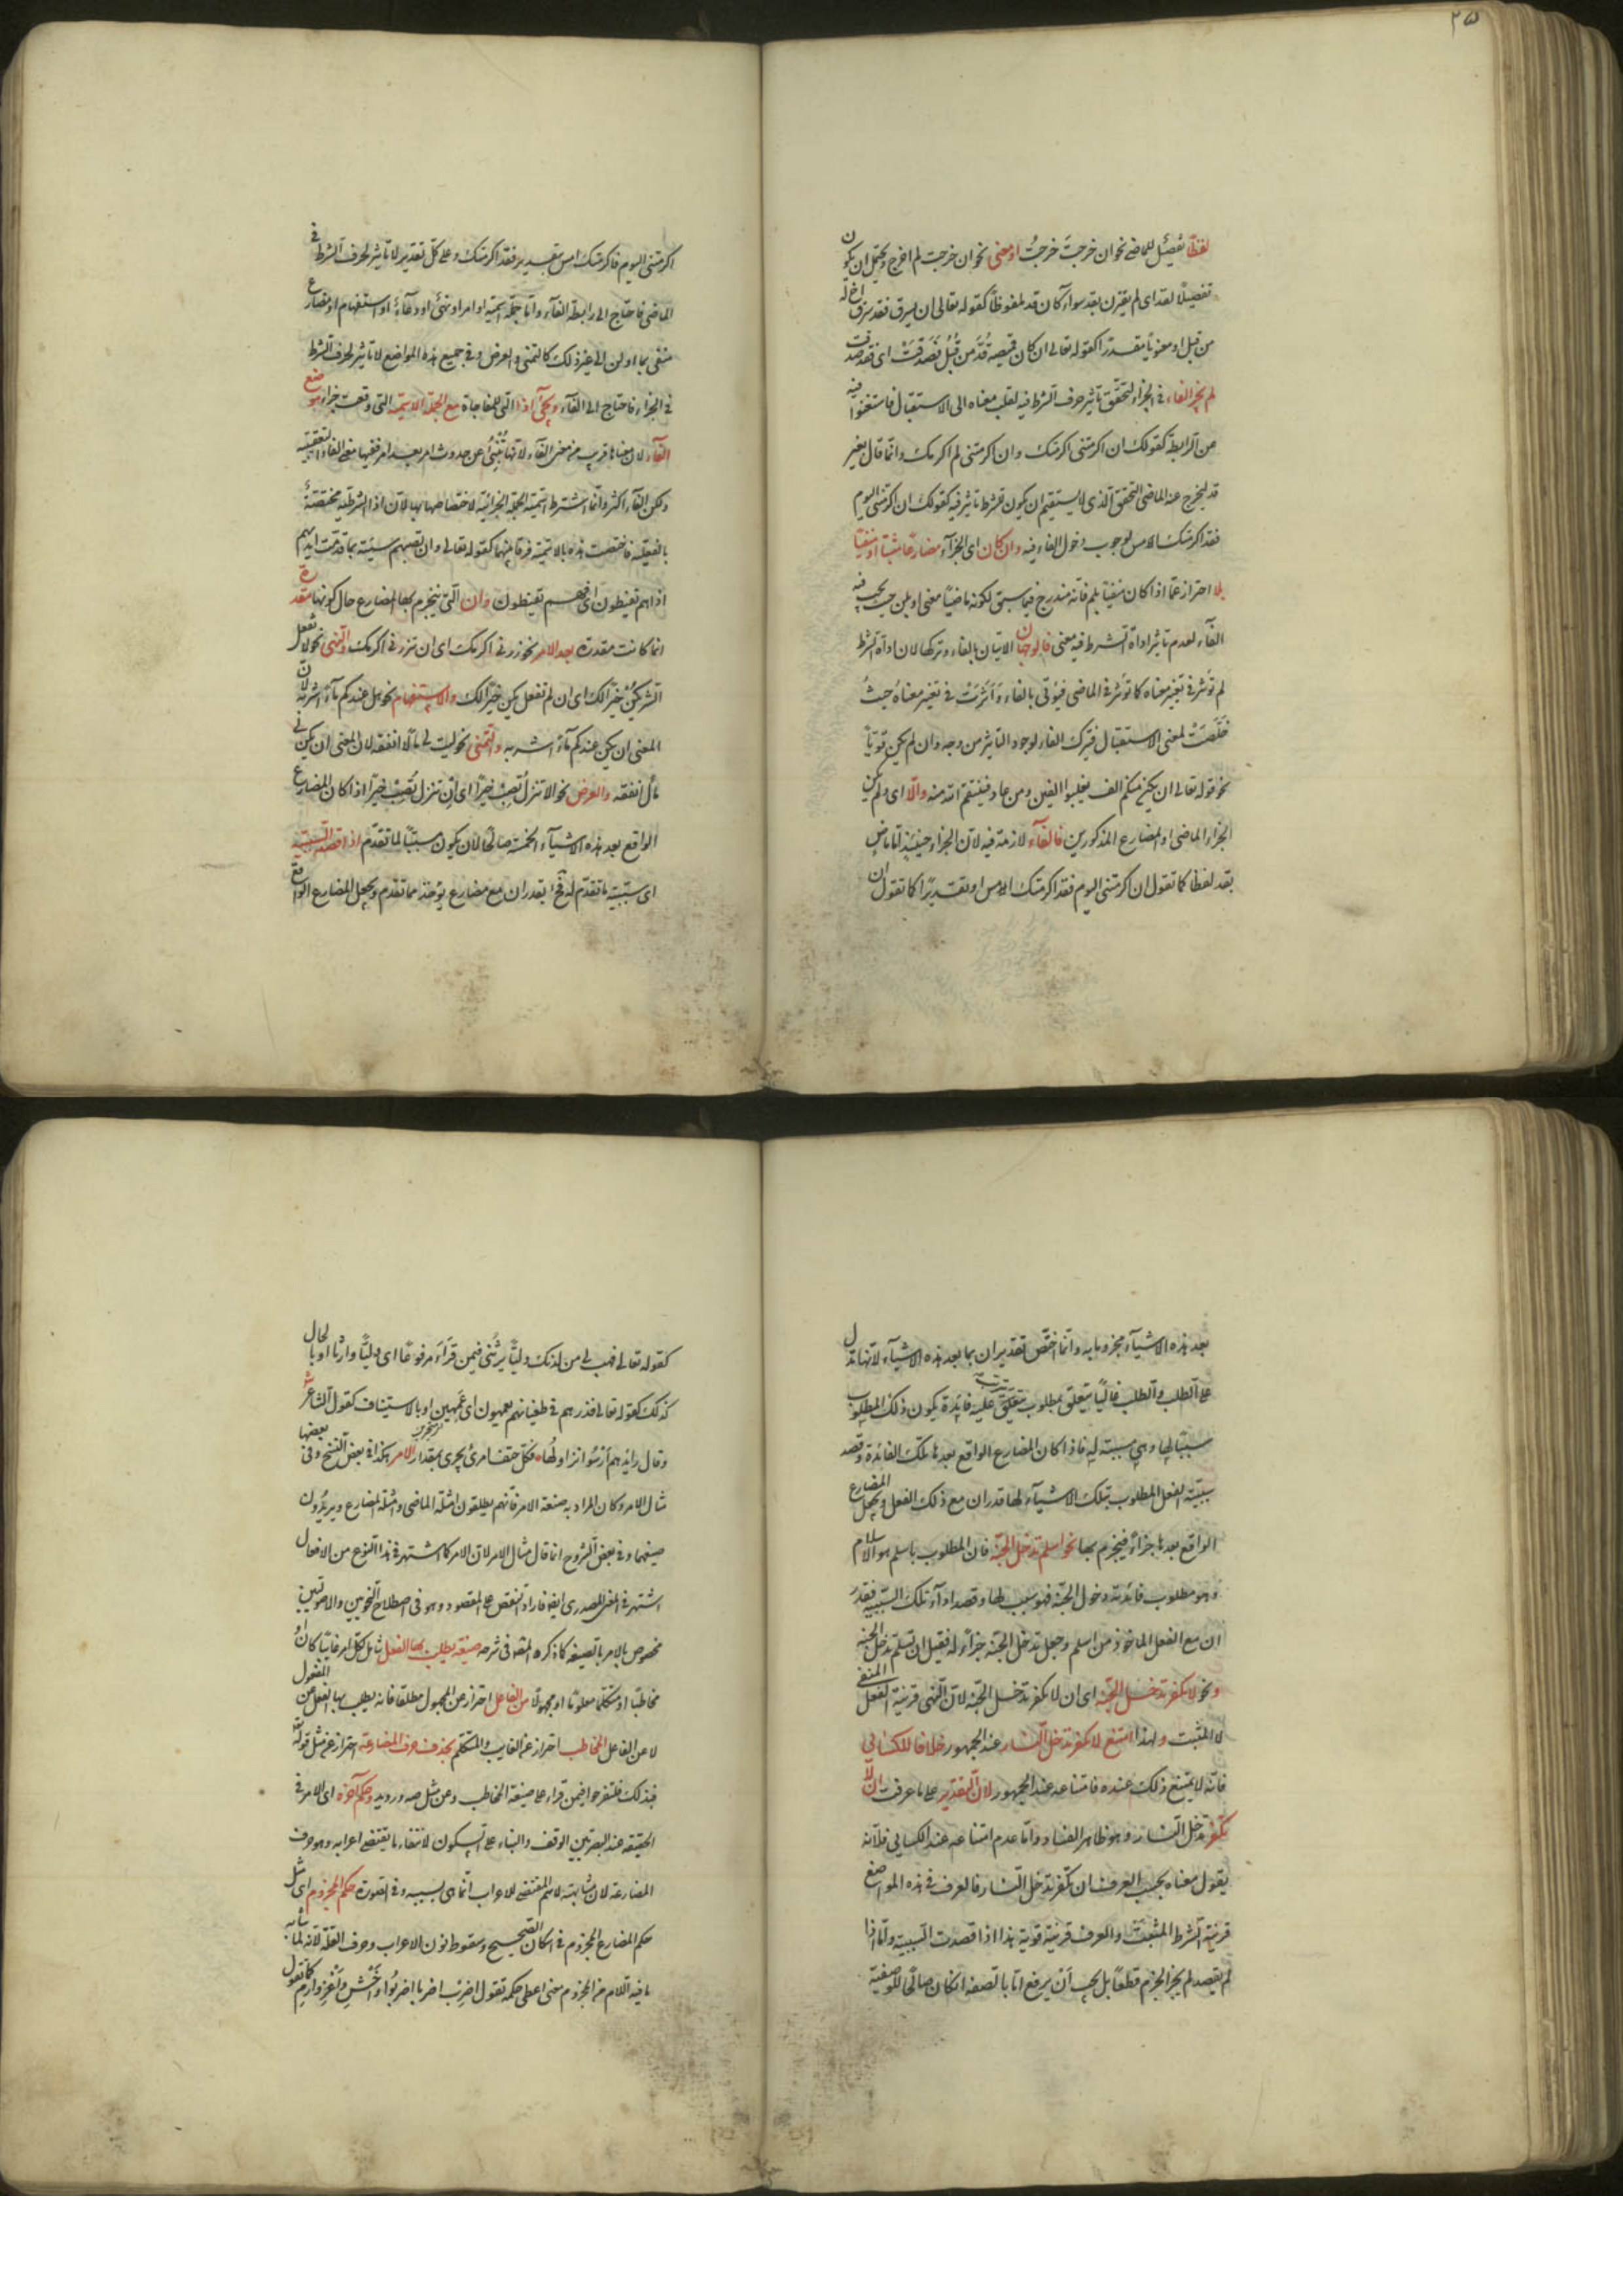 ٢٥
لفظا تفصيل للماضي نحو ان خرجتَ خرجتُ او معنى نحو ان خرجت لم اخرج ويحتمل ان يكون
تفصيلًا لقد اى لم يقترن بقد سواء كان قد ملفوظًا كقوله تعالى ان يسرق فقد سرق اخ له
من قبل او معنويا مقدرا كقوله تعالى ان كان قميصه قُدَّ من قُبُل فصَدَقَتْ اى فقد صدقت
لم يجز الفاء فى الجزاء لتحقق تاثير حرف الشرط فيه لقلب معناه الى الاستقبال فاستغنوا فيه
عن الرابطة كقولك ان اكرمتنى اكرمتك وان اكرمتنى لم اكرمك وانما قال بغير
قد ليخرج عنه الماضى المحقق الذى لا يستقيم ان يكون للشرط تاثير فيه كقولك ان اكرمتنى اليوم
فقد اكرمتك الامس لوجوب دخول الفاء فيه وان كان اى الجزاء مضارعا مثبتا او منفيا
بلا احتراز عما اذا كان منفيا بلم فانه مندرج فيما سبق لكونه ماضيًا معنى او بلن حيث يجب فيه
الفاء لعدم تاثير اداة الشرط فيه معنى فالوجهان الاتيان بالفاء وتركها لان اداة الشرط
لم تؤثر فى تغيير معناه كما تؤثر فى الماضى فيؤتى بالفاء وَاَثَّرَتْ فى تغير معناهُ حيثُ
خَلَّصَتْ لمعنى الاستقبال فيترك الفاء لوجود التاثير من وجه وان لم يكن قويّاً
نحو قوله تعالى ان يكن منكم الف يغلبوا الفين ومن عاد فينتقم الله منه والّا اى ولم يكن
الجزاء الماضى او المضارع المذكورين فالفاء لازمة فيه لان الجزاء حينئذ اما ماضٍ
بقد لفظا كما تقول ان اكرمتنى اليوم فقد اكرمتك الامس او تقديرًا كما تقول ان
اكرمتنى اليوم فاكرمتك امس بتقدير فقد اكرمتك وعلى كل تقدير لا تاثير لحرف الشرط فى
الماضى فاحتاج الى رابطة الفاء واما جملة اسمية او امر او نهىٌ او دعآءٌ او استفهام او مضارع
منفى بما او لن الى غير ذلك كالتمنى والعرض وفى جميع هذه المواضع لا تاثير لحرف الشرط
فى الجزاء فاحتاج الى الفآء ويجئ اذا التى للمفاجاة مع الجملة الاسمية التى وقعت جزاء موضع
الفاء لان معناها قريب من معنى الفاء لانها تُنْبِئُ عن حدوث امر بعد امر ففيها معنى الفاء التعقيبية
ولكن الفاء اكثر وانما اشترط اسمية الجملة الجزائية لاختصاصها بها لان اذا الشرطية مختصةٌ
بالفعلية فاختصت هذه بالاسمية فرقا بينهما كقوله تعالى وان تصبهم سيئة بما قدمت ايديهم
اذا هم يقنطون اى فهم يقنطون وان التى ينجزم بها المضارع حال كونها مقدرة
انما كانت مقدرة بعد الامر نحو زرنى اكرمك اى ان تزرنى اكرمك والنهى نحو لا تفعل
الشر يكنْ خيرًا لك اى ان لم تفعل يكن خيرًا لك والاستفهام نحو هل عندكم مآءٌ اشربه لان
المعنى ان يكن عندكم مآءٌ اشربه والتمنى نحو ليت لى مالًا انفقه لان المعنى ان يكن لى
مالٌ انفقه والعرض نحو الا تنزلُ تُصِبْ خيرًا اى ان تنزل تُصِبْ خيرًا اذا كان المضارع
الواقع بعد هذه الاشيآء الخمسة صالحًا لان يكون مسببًا لما تقدم اذا قصد السببية
اى سببية ما تقدم له فح يقدر ان مع مضارع يؤخذ مما تقدم ويجعل المضارع الواقع
بعد هذه الاشيآء مجزوما به وانما اختص تقدير ان بما بعد هذه الاشيآء لانها تدل
على الطلب والطلب غالبًا يتعلق بمطلوب يترتب عليه فائدة يكون ذلك المطلوب
سببًا لها وهى مسببة له فاذا كان المضارع الواقع بعدها تلك الفائدة وقصد
سببية الفعل المطلوب بتلك الاشيآء لها قدر ان مع ذلك الفعل ويجعل المضارع
الواقع بعدها جزاءً فينجزم بها نحو اسلم تدخل الجنة فان المطلوب باسلم هو الاسلام
وهو مطلوب فائدته دخول الجنة فهو سبب لها وقصد اداء تلك السببية فقدر
ان مع الفعل الماخوذ من اسلم وجعل تدخل الجنة جزاء له فقيل ان تسلم تدخل الجنة
ونحو لا تكفر تدخل الجنة اى ان لا تكفر تدخل الجنة لان النهى قرينة الفعل المنفى
لا المثبت ولهذا امتنع لا تكفر تدخل النار عند الجمهور خلافا للكسائى
فانه لا يمتنع ذلك عنده فامتناعه عند الجمهور لان التقدير على ما عرفت ان لا
تكفر تدخل النار وهو ظاهر الفساد واما عدم امتناعه عند الكسائى فلانه
يقول معناه بحسب العرف ان تكفر تدخل النار فالعرف فى هذه المواضع
قرينة الشرط المثبت والعرف قرينة قوية هذا اذا قصدت السببية واما اذا
لم يقصد لم يجز الجزم قطعًا بل يجب اَنْ يرفع اما بالصفة ان كان صالحًا للوصفية
كقوله تعالى فهب لى من لدنك وليًّا يرثنى فيمن قَرَأَ مرفوعًا اى وليًّا وارثًا او بالحال
كذلك كقوله تعالى فذرهم فى طغيانهم يعمهون اى عَمِهِين او بالاستيناف كقول الشاعر
وقال رائدهم اَرْسُوا نزاولُها فكل حتف امرئ يجرى بمقدار الامر هكذا فى بعض النسخ وفى بعضها
مثال الامر وكان المراد به صيغة الامر فانهم يطلقون امثلة الماضى وامثلة المضارع ويريدون
صيغهما وفى بعض الشروح انما قال مثال الامر لان الامر كما اشتهر فى هذا النوع من الافعال
اشتهر فى المعنى المصدرى ايضا فاراد النص على المقصود وهو فى اصطلاح النحويين والاصوليين
مخصوص بالامر بالصيغة كما ذكره المصنف فى شرحه صيغة يطلب بها الفعل شامل لكل امر غائبًا كان او
مخاطبًا او متكلمًا معلومًا او مجهولًا من الفاعل احتراز عن المجهول مطلقا فانه يطلب بها الفعل عن المفعول
لا عن الفاعل المخاطب احتراز عن الغايب والمتكلم بحذف حرف المضارعة احتراز عن مثل قوله
فبذلك فلتفرحوا فيمن قراء على صيغة المخاطب وعن مثل صه ورويد وحكم آخره اى الامر فى
الحقيقة عند البصريين الوقف والبناء على السكون لانتفاء ما يقتضى اعرابه وهو حرف
المضارعة لان مشابهته للاسم المقتضية للاعراب انما هى بسببه وفى الصورة حكم المجزوم اى مثل
حكم المضارع المجزوم فى اسكان الصحيح وسقوط نون الاعراب وحرف العلة لانه لما شابه
ما فيه اللام من المجزوم معنى اعطى حكمه تقول اضرِبْ اضربا اضربُوا واخْشَ واغْزُ وارمِ كما تقول